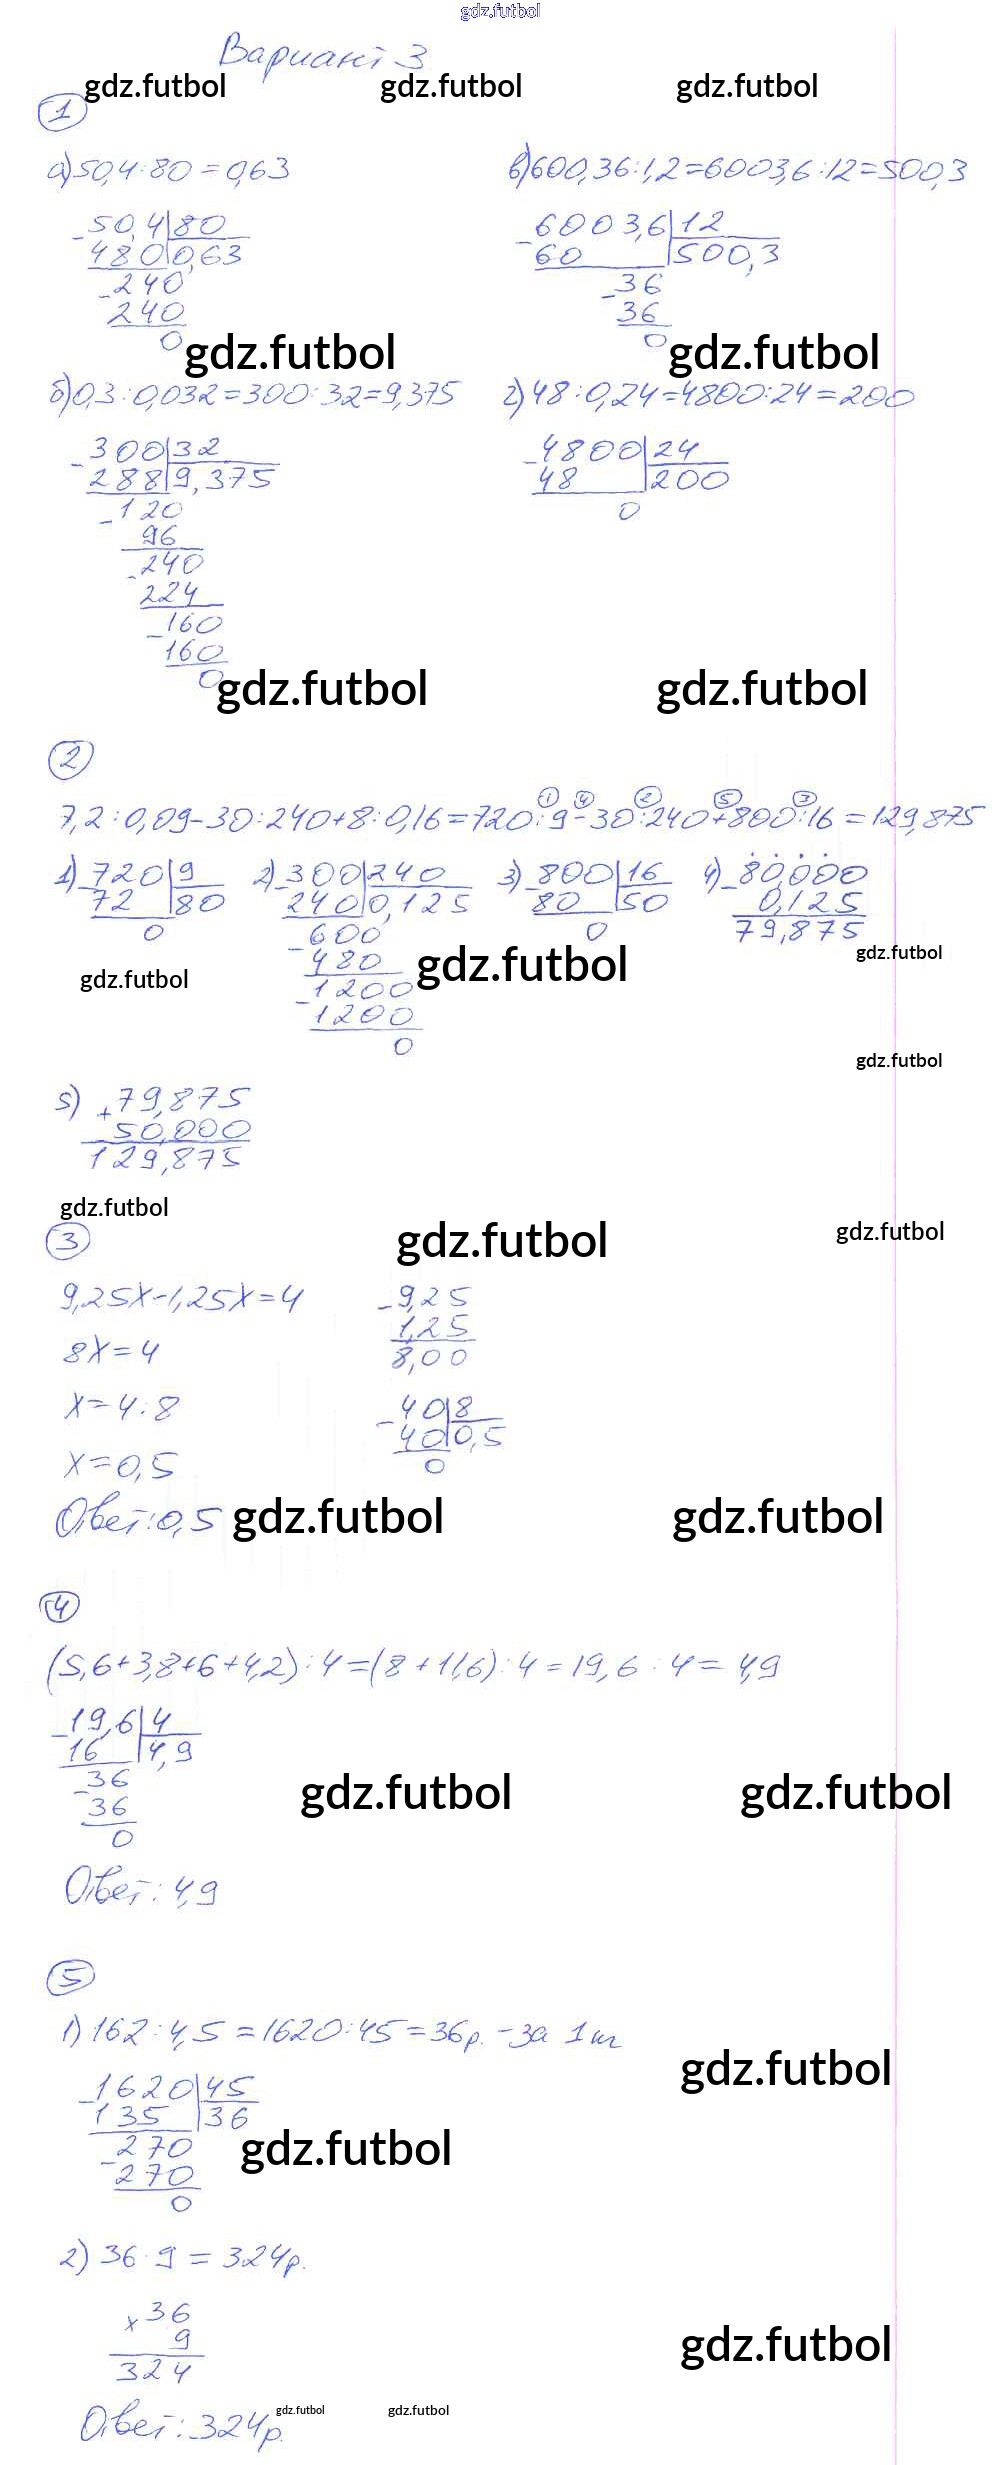 gdz.futbol
Вариант 3
gdz.futbol gdz.futbol gdz.futbol
1
а) 50,4:80=0,63
50,4 | 80
- 480 | 0,63
- 240
240
0
в) 600,36:1,2=6003,6:12=500,3
6003,6 | 12
- 60 | 500,3
- 36
36
0
gdz.futbol gdz.futbol
б) 0,3:0,032=300:32=9,375
300 | 32
- 288 | 9,375
- 120
96
- 240
224
- 160
160
0
г) 48:0,24=4800:24=200
4800 | 24
- 48 | 200
0
gdz.futbol gdz.futbol
2
1 4 2 5 3
7,2:0,09-30:240+8:0,16=720:9-30:240+800:16=129,875
1) 720 | 9
- 72 | 80
0
2) 300 | 240
- 240 | 0,125
- 600
480
- 1200
1200
0
3) 800 | 16
- 80 | 50
0
4) - 80,000
0,125
79,875
gdz.futbol gdz.futbol gdz.futbol
gdz.futbol
5) + 79,875
50,000
129,875
gdz.futbol
3
gdz.futbol gdz.futbol
9,25x-1,25x=4
8x=4
x=4:8
x=0,5
Ответ: 0,5
- 9,25
1,25
8,00
- 40 | 8
40 | 0,5
0
gdz.futbol gdz.futbol
4
(5,6+3,8+6+4,2):4=(8+11,6):4=19,6:4=4,9
- 19,6 | 4
16 | 4,9
- 36
36
0
gdz.futbol gdz.futbol
Ответ: 4,9
5
1) 162:4,5=1620:45=36р. - за 1 м
gdz.futbol
- 1620 | 45
135 | 36
- 270
270
0
gdz.futbol
2) 36·9=324р.
x 36
9
324
gdz.futbol
Ответ: 324р.
gdz.futbol gdz.futbol